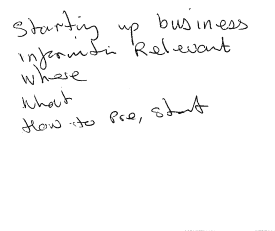 Starting up business
Informatin Relevant
Where
What
How to Pre, start